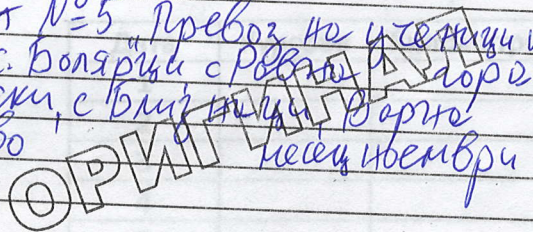 т №5 „Превоз на ученици и
с. Болярци, с Равна гора
ски, с Близнаци, Варна
во месец ноември
ОРИГИНАЛ